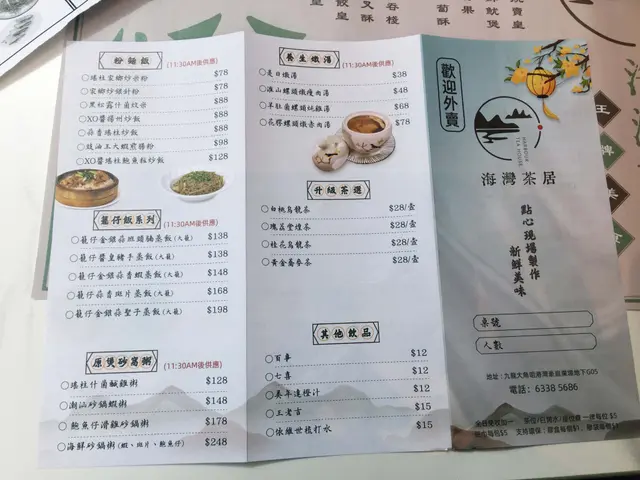 粉麵飯 (11:30AM後供應)
瑤柱家鄉炒米粉 $78
家鄉炒銀針粉 $78
黑松露什菌炆米 $88
XO醬揚州炒飯 $88
蒜香瑤柱炒飯 $88
豉油王大蝦煎腸粉 $98
XO醬瑤柱鮑魚粒炒飯 $128
籠仔飯系列 (11:30AM後供應)
籠仔金銀蒜班頭腩蒸飯(大籠) $138
籠仔醬皇豬手蒸飯(大籠) $138
籠仔金銀蒜香蝦蒸飯(大籠) $148
籠仔蒜香班片蒸飯(大籠) $168
籠仔金銀蒜聖子蒸飯(大籠) $198
原煲砂窩粥 (11:30AM後供應)
瑤柱什菌鹹雞粥 $128
潮汕砂鍋蝦粥 $148
鮑魚仔滑雞砂鍋粥 $178
海鮮砂鍋粥(蝦、班片、鮑魚仔) $248
養生燉湯 (11:30AM後供應)
是日燉湯 $38
淮山螺頭燉瘦肉湯 $48
羊肚菌螺頭燉雞湯 $68
花膠螺頭燉赤肉湯 $78
升級茶選
白桃烏龍茶 $28/壺
瑰荔堂煌茶 $28/壺
桂花烏龍茶 $28/壺
黃金蕎麥茶 $28/壺
其他飲品
百事 $12
七喜 $12
美年達橙汁 $12
王老吉 $15
依維世棧打水 $15
歡迎外賣
HARBOUR TEA HOUSE
海灣茶居
點心現場製作
新鮮美味
桌號
人數
地址：九龍大角咀港灣豪庭廣場地下G05
電話：6338 5686